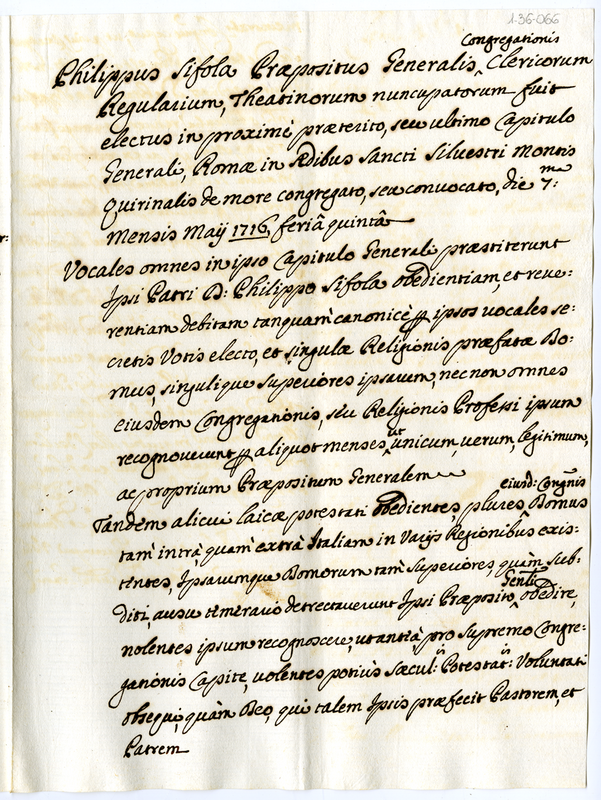 1-36-066
Congregationis
Philippus Sifola Præpositus Generalis ^ Clericorum
Regularium, Theatinorum nuncupatorum fuit
electus in proximè præterito, seu ultimo Capitulo
Generali, Romæ in Ædibus Sancti Silvestri Montis
Quirinalis de more congregato, seu convocato, die 7:ma
Mensis Maij 1716, feriâ quintâ
Vocales omnes in ipso Capitulo Generali præstiterunt
Ipsi Patri D: Philippo Sifola obedientiam, et reve:
rentiam debitam tanquam canonicè ipsos vocales se:
cretis Votis electo, et singulæ Religionis præfatæ Do:
mus, singulique Superiores ipsarum, nec non omnes
eiusdem Congregationis, seu Religionis Professi ipsum
recognoverunt aliquot menses, ut unicum, verum, legitimum,
ac proprium Præpositum Generalem
eiusd: Congnis
Tandem alicui laicæ potestati obedientes, plures ^ Domus
tam intrà quam extrà Italiam in Varijs Regionibus exis:
tentes, Ipsarumque Domorum tam Superiores, quàm sub:
diti, ausu temerario detrectaverunt Ipsi Præposito ^ Genli obedire,
nolentes ipsum recognoscere, ut anteà, pro Supremo Congre:
gationis Capite, volentes potiùs sæcul:is Potestat:is Voluntati
obsequi, quàm Deo, qui talem Ipsis præfecit Pastorem, et
Patrem